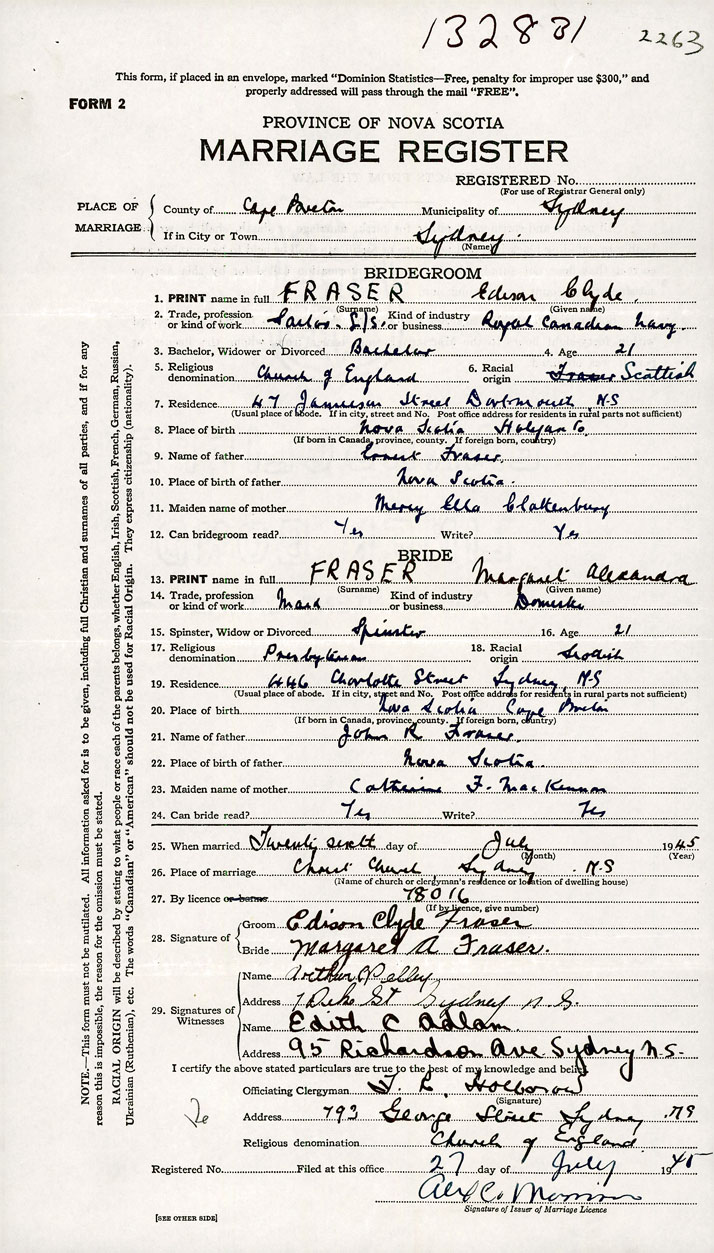 132831 2263
This form, if placed in an envelope, marked "Dominion Statistics—Free, penalty for improper use $300," and
properly addressed will pass through the mail "FREE".
FORM 2
PROVINCE OF NOVA SCOTIA
MARRIAGE REGISTER
REGISTERED No.
(For use of Registrar General only)
PLACE OF MARRIAGE
County of Cape Breton Municipality of Sydney
If in City or Town Sydney
(Name)
BRIDEGROOM
1. PRINT name in full FRASER Edison Clyde
(Surname) (Given name)
2. Trade, profession or kind of work Sailor S/S. Kind of industry or business Royal Canadian Navy
3. Bachelor, Widower or Divorced Bachelor 4. Age 21
5. Religious denomination Church of England 6. Racial origin Fraser Scottish
7. Residence 47 Jamieson Street Dartmouth, N.S
(Usual place of abode. If in city, street and No. Post office address for residents in rural parts not sufficient)
8. Place of birth Nova Scotia Halifax Co.
(If born in Canada, province, county. If foreign born, country)
9. Name of father Ernest Fraser
10. Place of birth of father Nova Scotia.
11. Maiden name of mother Mercy Ella Clattenburg
12. Can bridegroom read? Yes Write? Yes
BRIDE
13. PRINT name in full FRASER Margaret Alexandra
(Surname) (Given name)
14. Trade, profession or kind of work Maid Kind of industry or business Domestic
15. Spinster, Widow or Divorced Spinster 16. Age 21
17. Religious denomination Presbyterian 18. Racial origin Scotish
19. Residence 446 Charlotte Street Sydney, N.S
(Usual place of abode. If in city, street and No. Post office address for residents in rural parts not sufficient)
20. Place of birth Nova Scotia Cape Breton
(If born in Canada, province, county. If foreign born, country)
21. Name of father John R Fraser.
22. Place of birth of father Nova Scotia.
23. Maiden name of mother Catherine F. MacKinnon
24. Can bride read? Yes Write? Yes
25. When married Twenty sixth day of July 1945
(Month) (Year)
26. Place of marriage Christ Church Sydney N.S
(Name of church or clergyman's residence or location of dwelling house)
27. By licence or banns 78016
(If by licence, give number)
28. Signature of
Groom Edison Clyde Fraser
Bride Margaret A Fraser.
29. Signatures of Witnesses
Name Arthur Pelley
Address 7 St Sydney N.S.
Name Edith C Adlam.
Address 95 Richardson Ave Sydney N.S.
I certify the above stated particulars are true to the best of my knowledge and belief.
Officiating Clergyman
(Signature)
Address 793 George Street Sydney N.S
Religious denomination Church of England
Registered No. Filed at this office 27 day of July 1945
Signature of Issuer of Marriage Licence
[SEE OTHER SIDE]
NOTE.—This form must not be mutilated. All information asked for is to be given, including full Christian and surnames of all parties, and if for any
reason this is impossible, the reason for the omission must be stated.
RACIAL ORIGIN will be described by stating to what people or race each of the parents belongs, whether English, Irish, Scottish, French, German, Russian,
Ukrainian (Ruthenian), etc. The words "Canadian" or "American" should not be used for Racial Origin. They express citizenship (nationality).